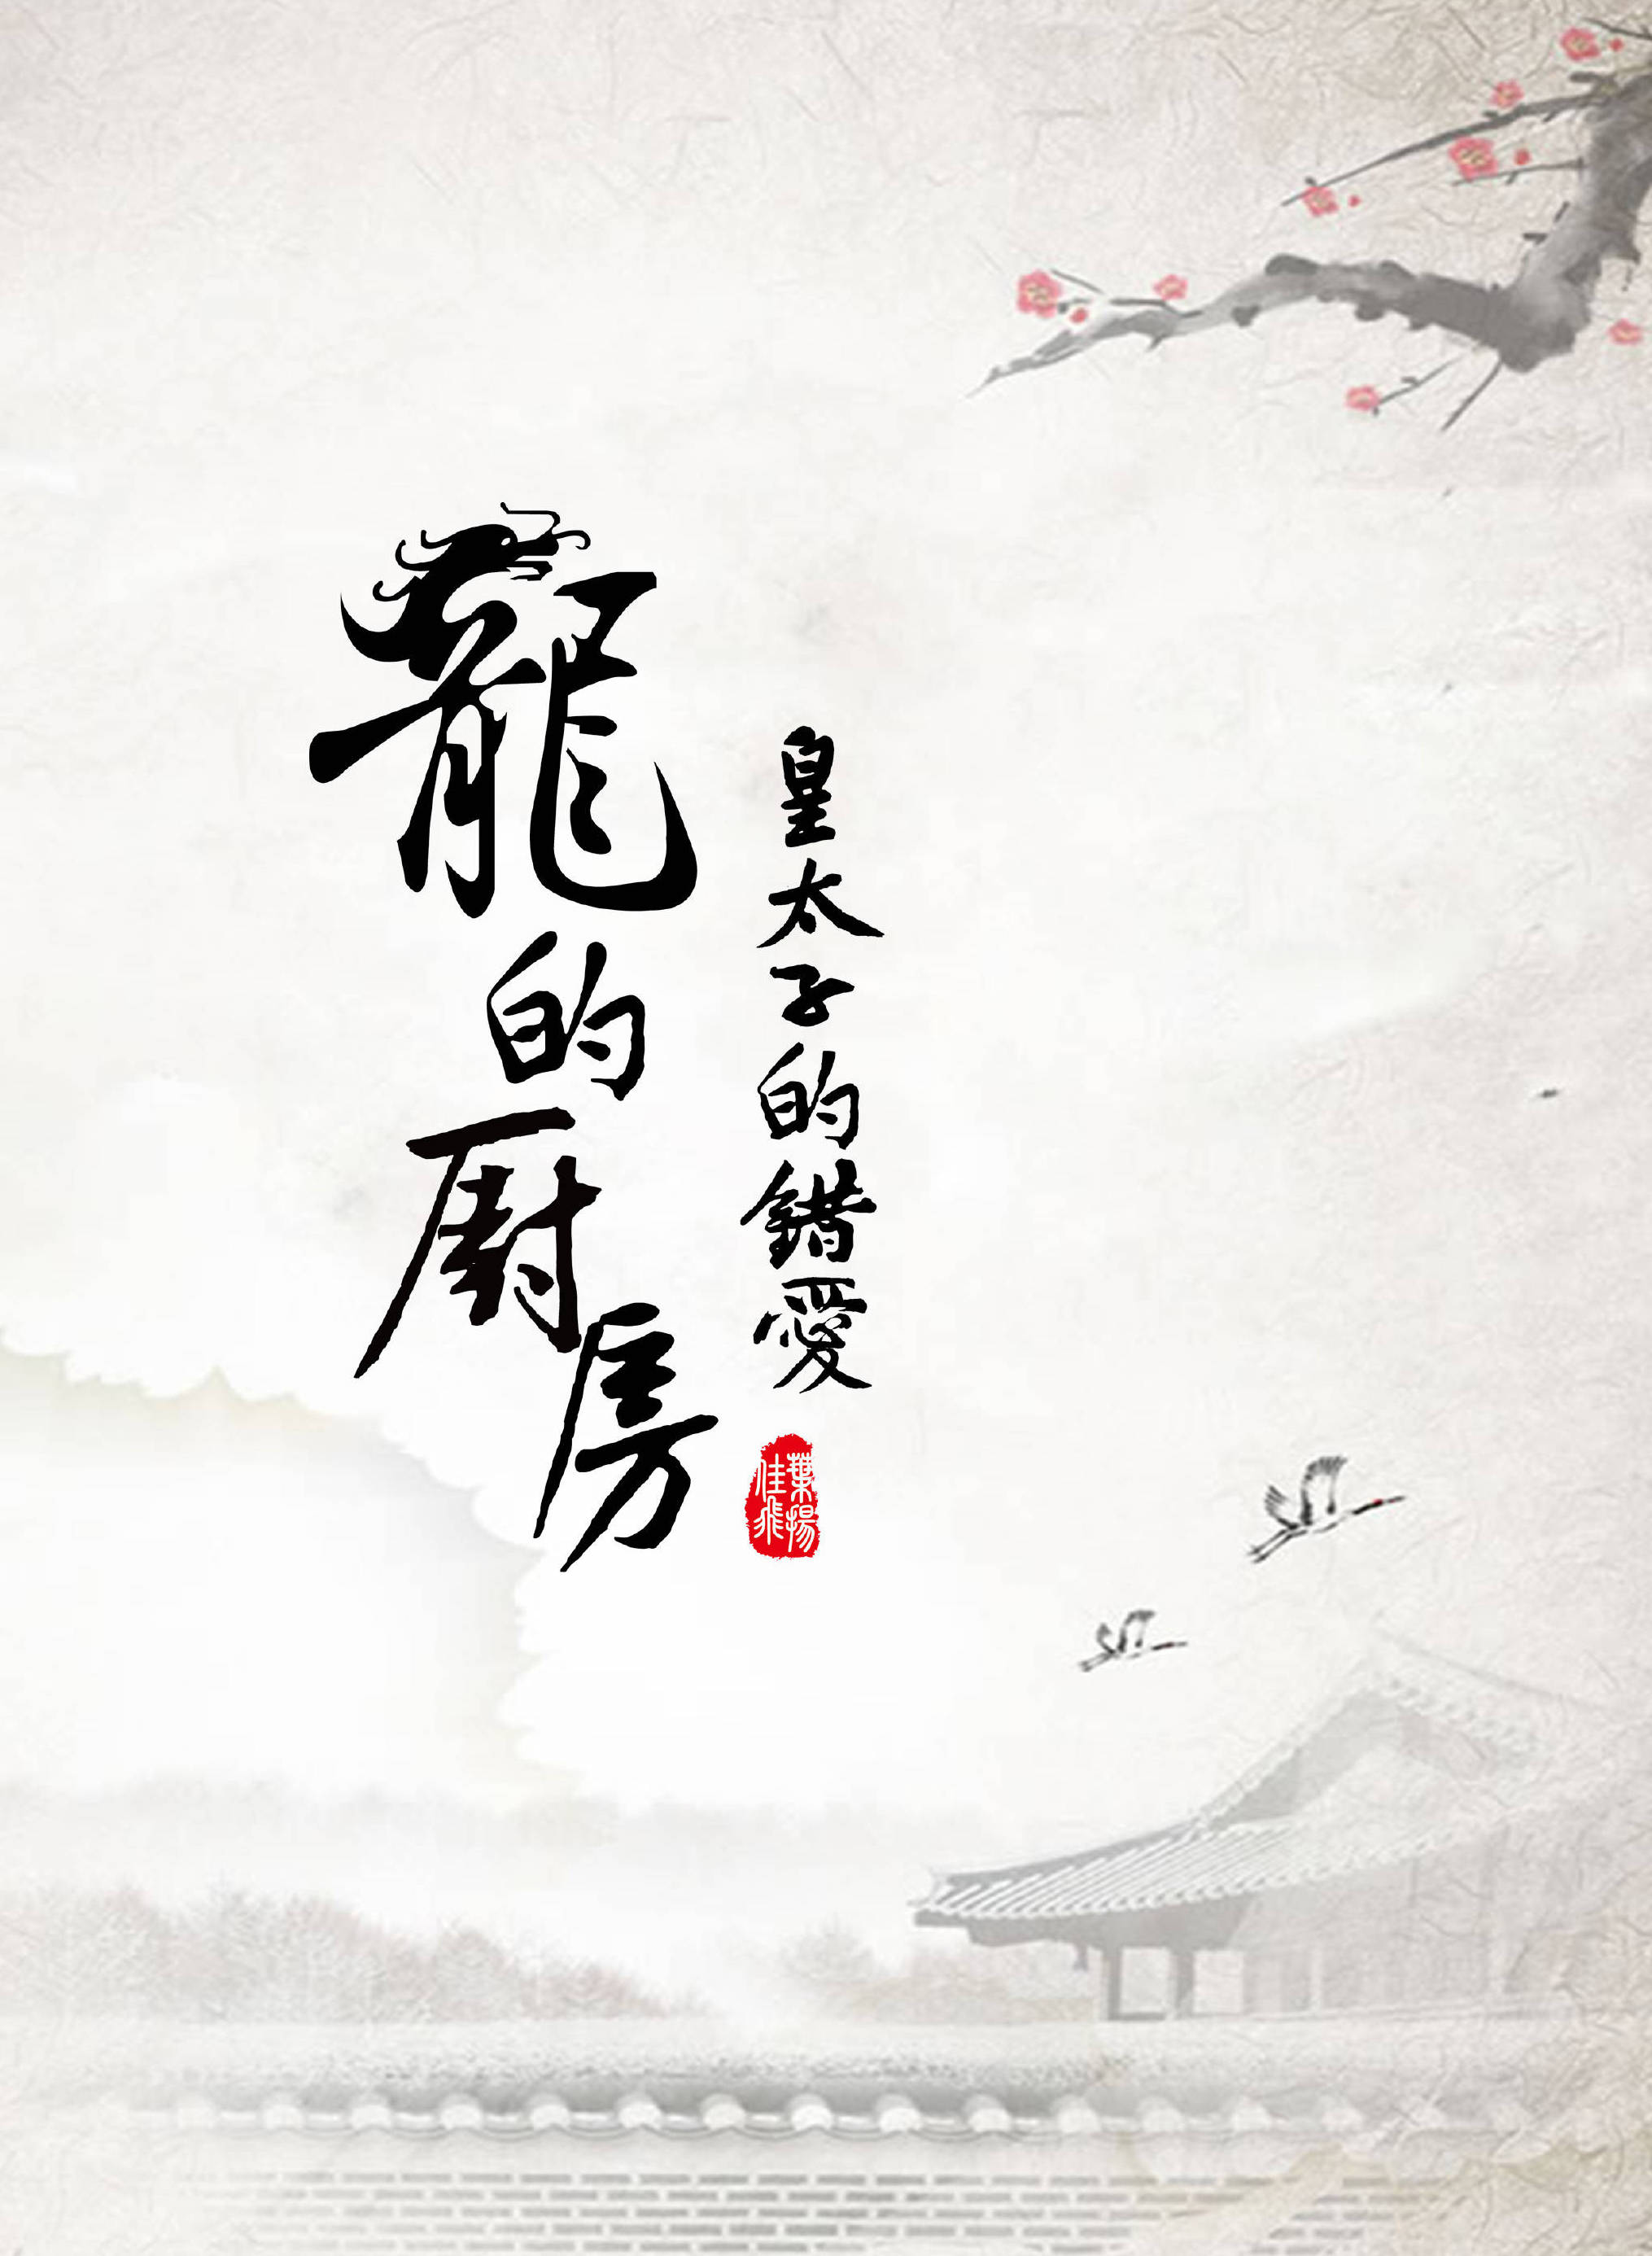 龍的厨房
皇太子的錯愛
葉揚
佳飛